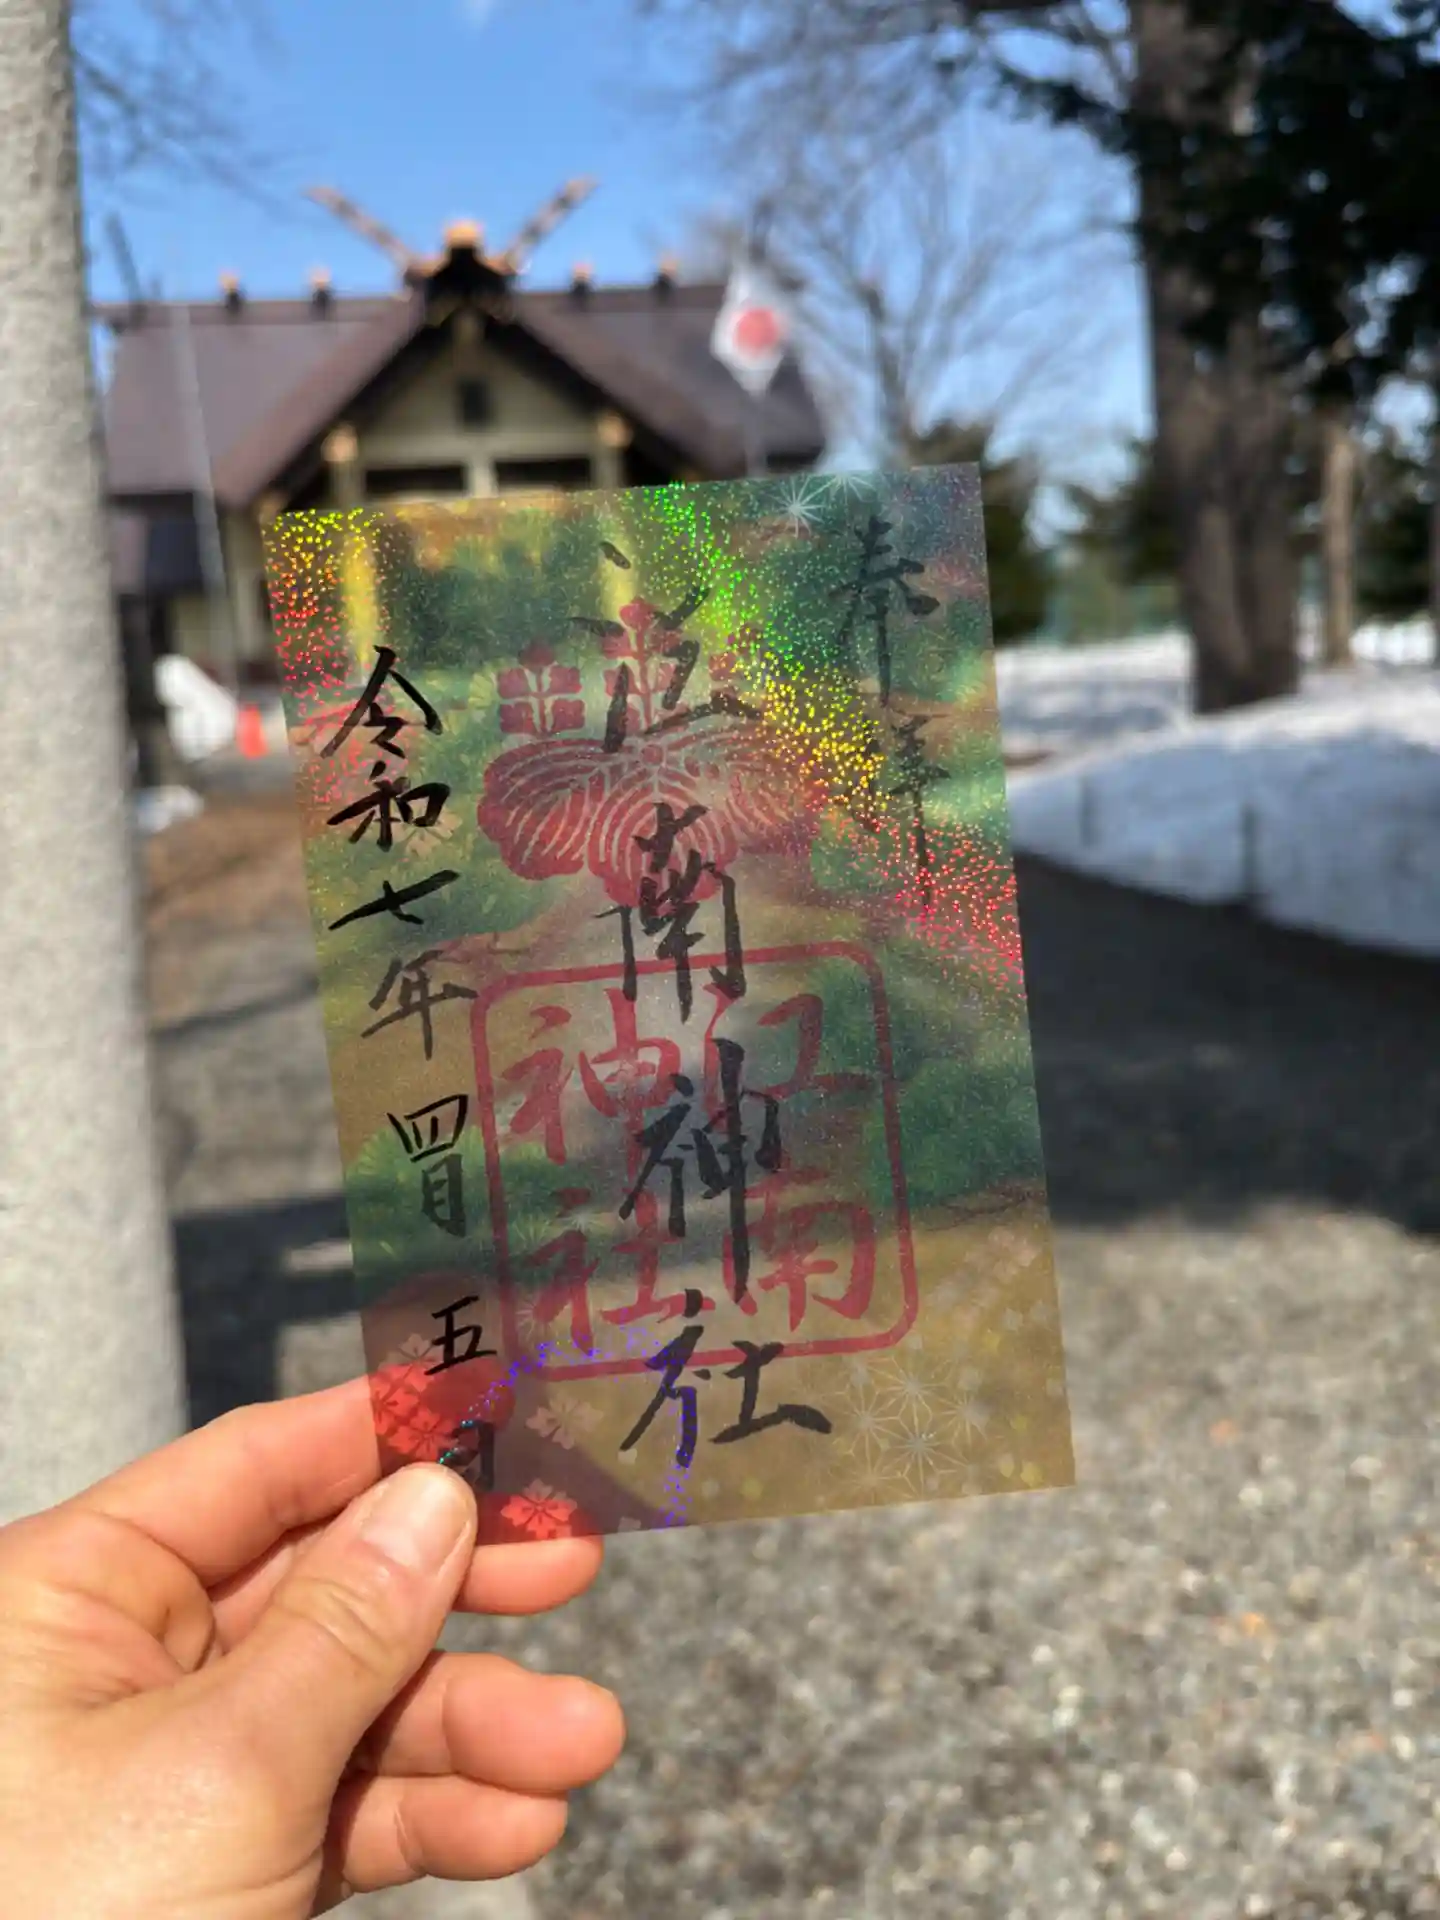 奉拝
江南神社
江南
神社
令和七年四月五日